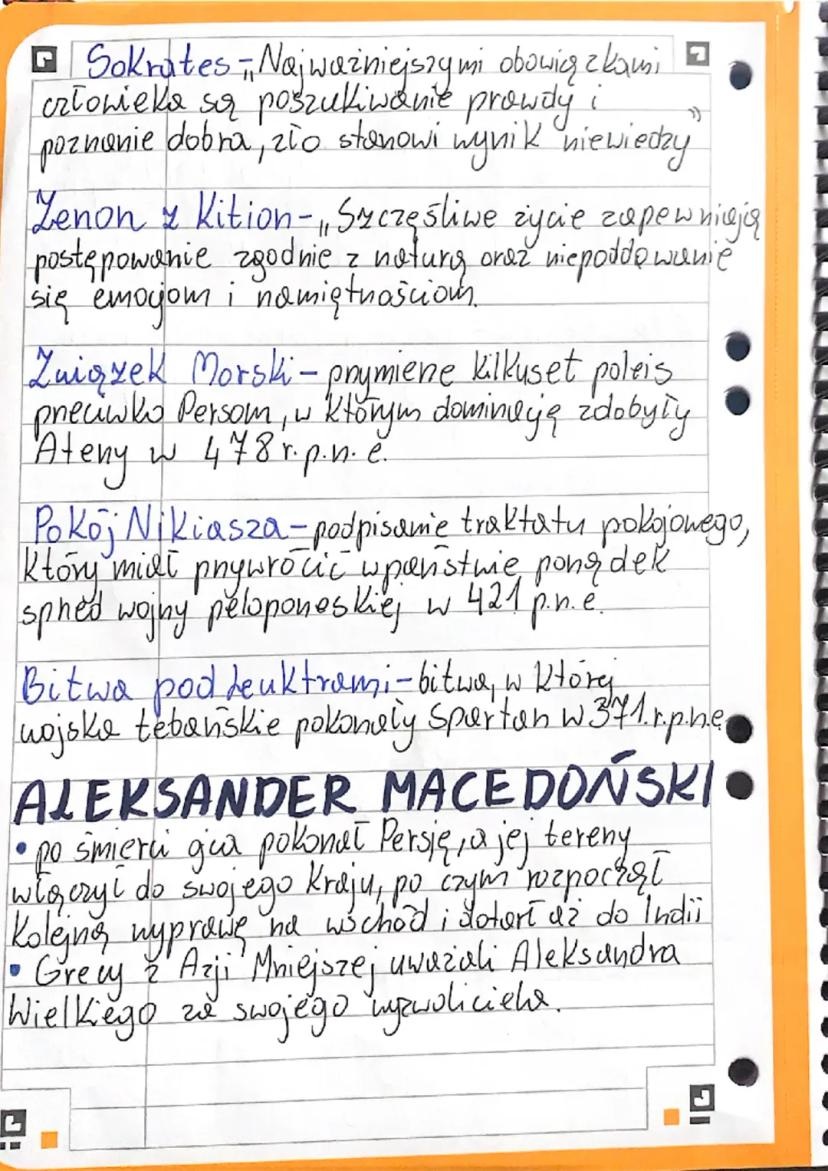 Sokrates - „Najważniejszymi obowiązkami
człowieka są poszukiwanie prawdy i
poznanie dobra, zło stanowi wynik niewiedzy”
Zenon z Kition - „Szczęśliwe życie zapewniają
postępowanie zgodnie z naturą oraz niepoddawanie
się emocjom i namiętnościom.
Związek Morski - przymierze kilkuset poleis
przeciwko Persom, w którym dominację zdobyły
Ateny w 478 r. p.n.e.
Pokój Nikiasza - podpisanie traktatu pokojowego,
który miał przywrócić w państwie porządek
sprzed wojny peloponeskiej w 421 p.n.e.
Bitwa pod Leuktrami - bitwa, w której
wojska tebańskie pokonały Spartan w 371 r.p.n.e
ALEKSANDER MACEDOŃSKI
• po śmierci ojca pokonał Persję, a jej tereny
włączył do swojego kraju, po czym rozpoczął
kolejną wyprawę na wschód i dotarł aż do Indii
• Grecy z Azji Mniejszej uważali Aleksandra
Wielkiego za swojego wyzwoliciela.